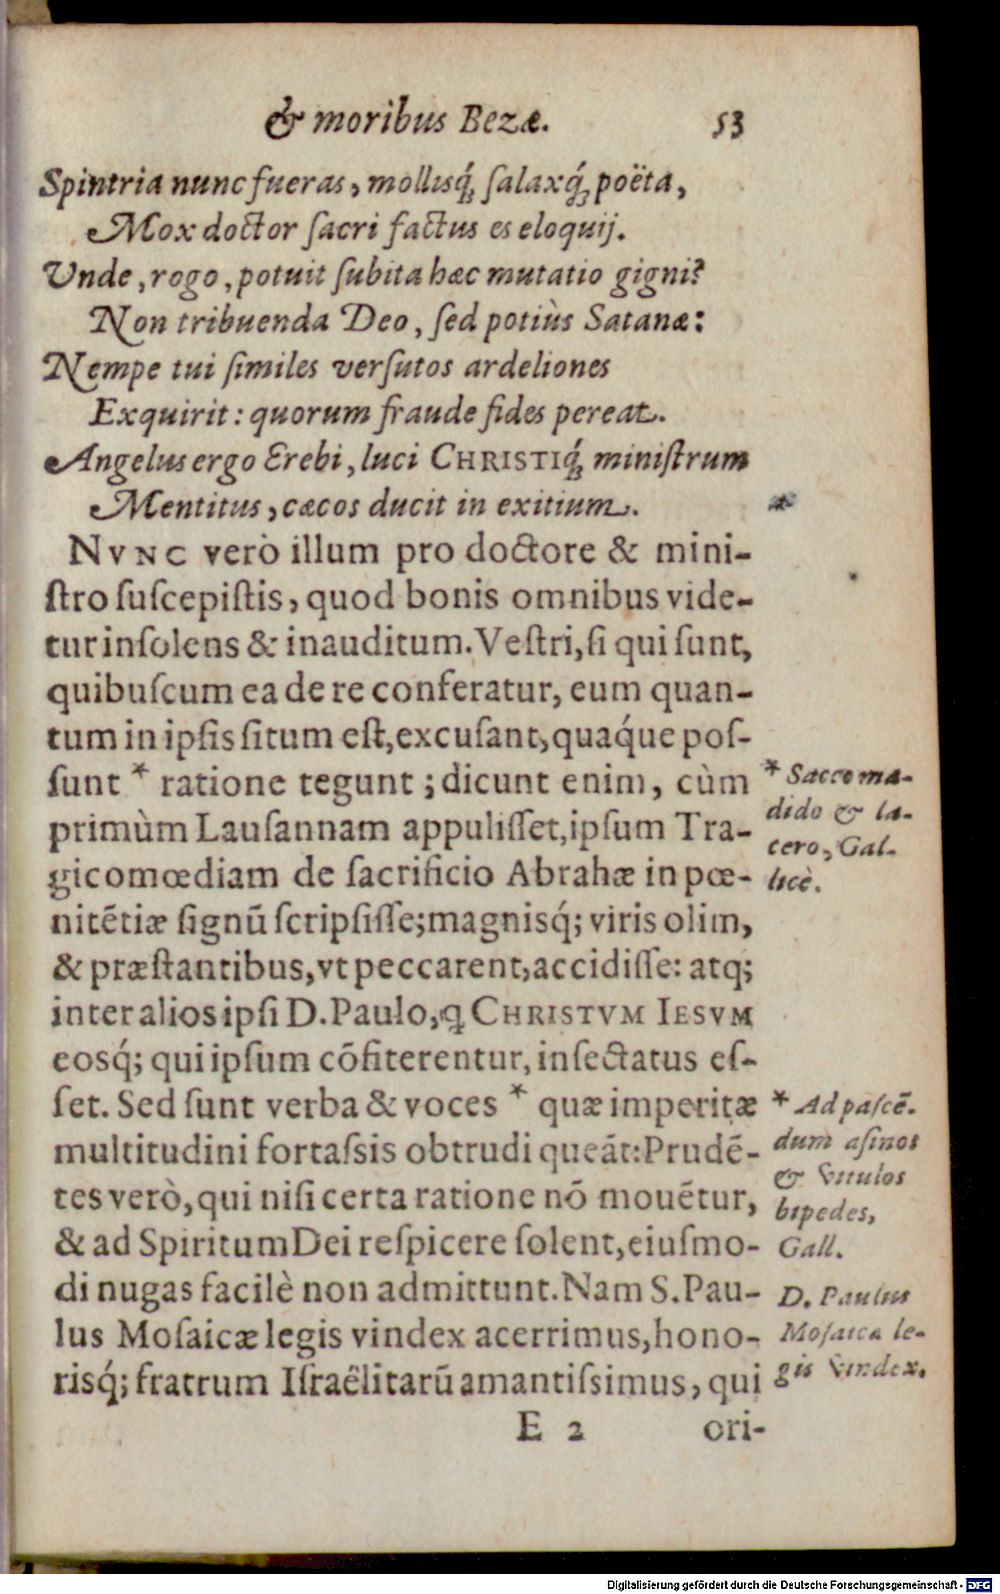 & moribus Bezæ. 53
Spintria nunc fueras, mollisq́; ſalaxq́; poëta,
Mox doctor ſacri factus es eloquij.
Unde, rogo, potuit ſubita hæc mutatio gigni?
Non tribuenda Deo, ſed potiùs Satanæ:
Nempe tui ſimiles verſutos ardeliones
Exquirit: quorum fraude fides pereat.
Angelus ergo Erebi, luci CHRISTIq́; miniſtrum
Mentitus, cæcos ducit in exitium.
NVNC verò illum pro doctore & mini-
ſtro ſuſcepiſtis, quod bonis omnibus vide-
tur inſolens & inauditum. Veſtri, ſi qui ſunt,
quibuſcum ea de re conferatur, eum quan-
tum in ipſis ſitum eſt, excuſant, quaq́ue poſ-
ſunt * ratione tegunt; dicunt enim, cùm
primùm Lauſannam appuliſſet, ipſum Tra-
gicomœdiam de ſacrificio Abrahæ in pœ-
nitẽtiæ ſignũ ſcripſiſſe; magnisq́; viris olim,
& præſtantibus, vt peccarent, accidiſſe: atq;
inter alios ipſi D. Paulo, ꝗ CHRISTVM IESVM
eosq́; qui ipſum cõfiterentur, inſectatus eſ-
ſet. Sed ſunt verba & voces * quæ imperitæ
multitudini fortaſsis obtrudi queãt: Prudẽ-
tes verò, qui niſi certa ratione nõ mouẽtur,
& ad Spiritum Dei reſpicere ſolent, eiuſmo-
di nugas facilè non admittunt. Nam S. Pau-
lus Moſaicæ legis vindex acerrimus, hono-
risq́; fratrum Iſraêlitarũ amantiſsimus, qui
E 2 ori-
* Sacco ma-
dido & la-
cero, Gal-
licè.
* Ad paſcẽ-
dum aſinos
& vitulos
bipedes,
Gall.
D. Paulus
Moſaica le-
gis vindex.
Digitalisierung gefördert durch die Deutsche Forschungsgemeinschaft - DFG